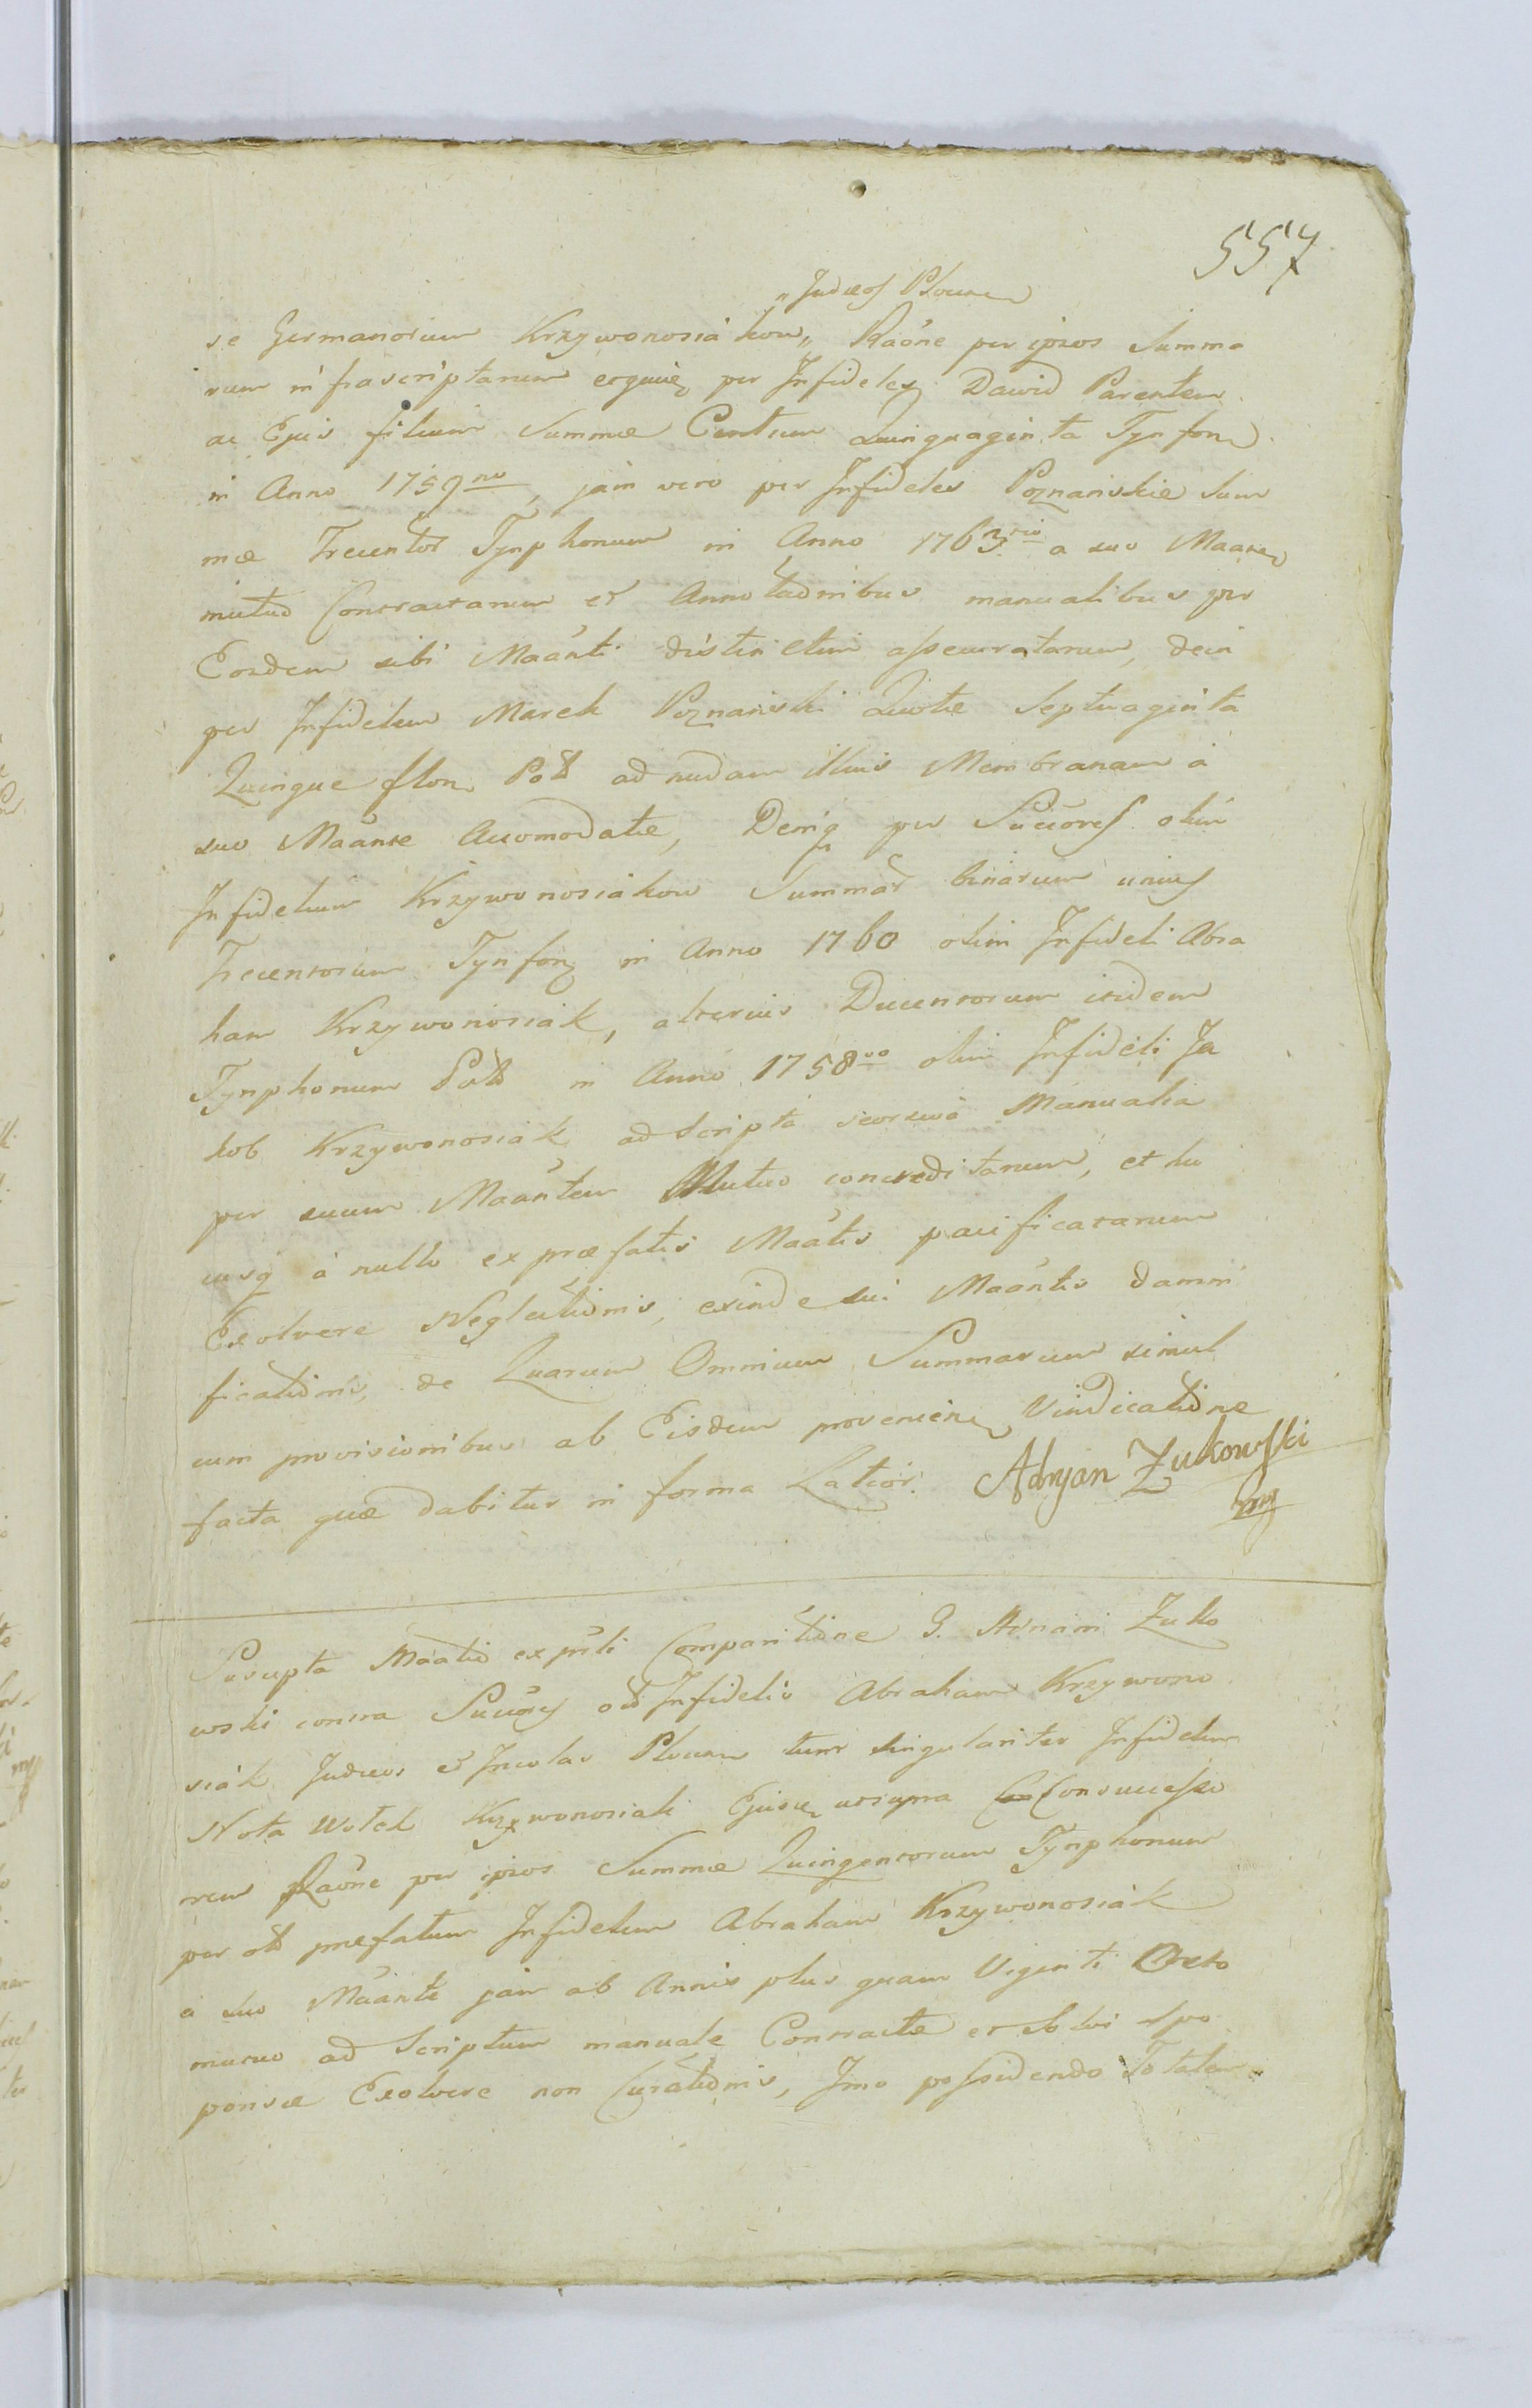 557
"Judæos Plocen
se Germanorum Krzywonosiakow„ Raõne per ipsos Summa
rum infrascriptarum ergvie per Infideles Dawid Parentem
ac Ejus filium Summæ Centum Quinquaginta Tynfon
in Anno 1759no, jam vero per Infideles Poznanskie Sum
mæ Trecentor Tynphonum in Anno 1763tio a suo Maane
mutuo Contractarum et Annotaõnibus manualibus per
Eosdem sibi Maanti distinctim assecuratarum, dein
per Infidelem Marek Poznanski Quotæ Septuaginta
Quinque flon Pol ad nudam illius Membranam à
suo Maante Accomodatæ, Deniq per Succores olim
Infidelium Krzywonosiakow Summar binarum unius
Trecentorum Tynfon in Anno 1760 olim Infideli Abra
ham Krzywonosiak, alterius Ducentorum itidem
Tynphonum Pol in Anno 1758vo olim Infideli Ja
kob Krzywonosiak ad Scripta seorsiva Manualia
per suum Maantem Mutuo concreditarum, et hu
cusq à nullo ex præfatis Maatis pacificatarum
Exolvere Neglectiõnis, exinde sui Maantis damni
ficatiõnis, de Quarum Omnium Summarum simul
cum provisionibus ab Eisdem provenien Vindicatiõne
facta quæ dabitur in forma Latior. Adryan Zukowski
mp
Suscepta Maatiõ ex prñti Comparitiõne G. Adriani Zuko
wski contra Succores olt Infidelis Abraham Krzywono
siak Judæos et Incolas Plocen tum singulariter Infidelem
Nota Wolek Krzywonosiak Ejusq utsupra Consuccesso
rem Raõne per ipsos Summæ Quingentorum Tynphonum
per olt præfatum Infidelem Abraham Krzywonosiak
a suo Maante jam ab Annis plus quam Viginti Octo
mutuo ad Scriptum manuale Contractæ et Solvi spo
ponsæ Exolvere non Curatiõnis, Imo possidendo Totalem